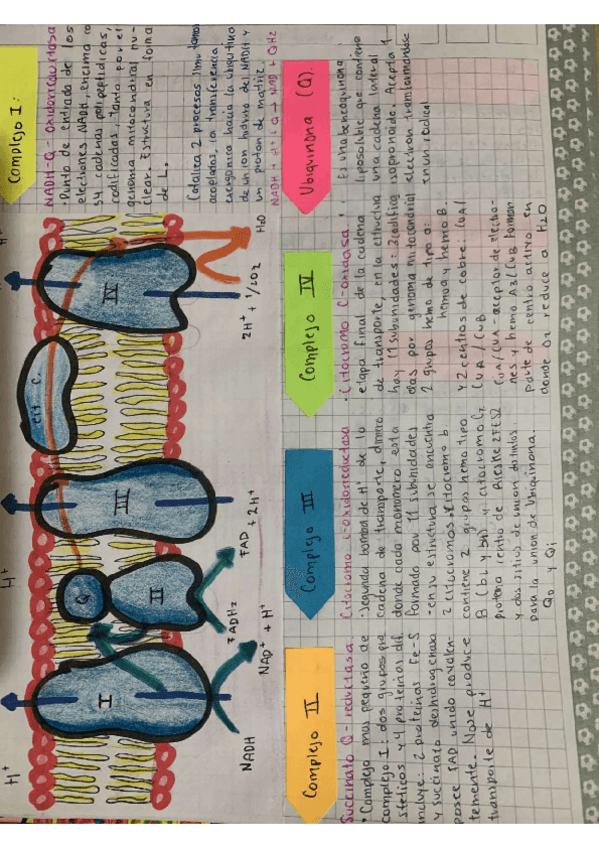 Complejo I:
NADH-Q-Oxidorreductasa
· Punto de entrada de los
electrones NADH, encima co
54 cadenas polipeptidicas,
codificadas tanto por el
genoma mitocondrial nu-
clear. Estructura en forma
de L.
Cataliza 2 procesos simultaneos
acoplados, la transferencia
exergonica hacia la ubiquitina
de un ion hidruro del NADH y
un proton de matriz.
NADH + H⁺ + Q → NAD + QH2
H⁺
H⁺
I
Q
II
III
cit c.
IV
NADH
NAD⁺ + H⁺
FADH2
FAD + 2H⁺
2H⁺ + 1/2O2
H2O
Complejo II
Succinato Q-reductasa:
· Complejo mas pequeño de
complejo I: dos grupos pro
stéticos y 4 proteínas dif.
incluye: 2 proteínas Fe-S
y succinato deshidrogenasa
posee FAD unido covalen-
temente. No se produce
transporte de H⁺
Complejo III
Citocromo c-oxidoreductasa
· Segunda bomba de H⁺ de la
cadena de transporte, dimero
donde cada monomero esta
formado por 11 subunidades
· en su estructura se encuentra
2 citocromos. Citocromo b
contiene 2 grupos hemo tipo
B (bL y bH) y citocromo C,
proteina centro de Rieske 2FES2
y dos sitios de union distintos
para la union de Ubiquinona.
Qo y Qi
Complejo IV
· Citocromo C-oxidasa:
etapa final de la cadena
de transporte, en la estructura
hay 11 subunidades: 3 codifica
das por genoma mitocondrial
2 grupos hemo de tipo a:
hemo a y hemo B.
y 2 centros de cobre: CuA/
CuA / CuB
CuA/CuA-aceptor de electro-
nes y hemo A3/CuB forman
parte de centro activo en
donde O2 reduce a H2O
Ubiquinona (Q).
Es una benzoquinona
liposoluble que contiene
una cadena lateral
isoprenoide. Acepta 1
electron transformandose
en un radical